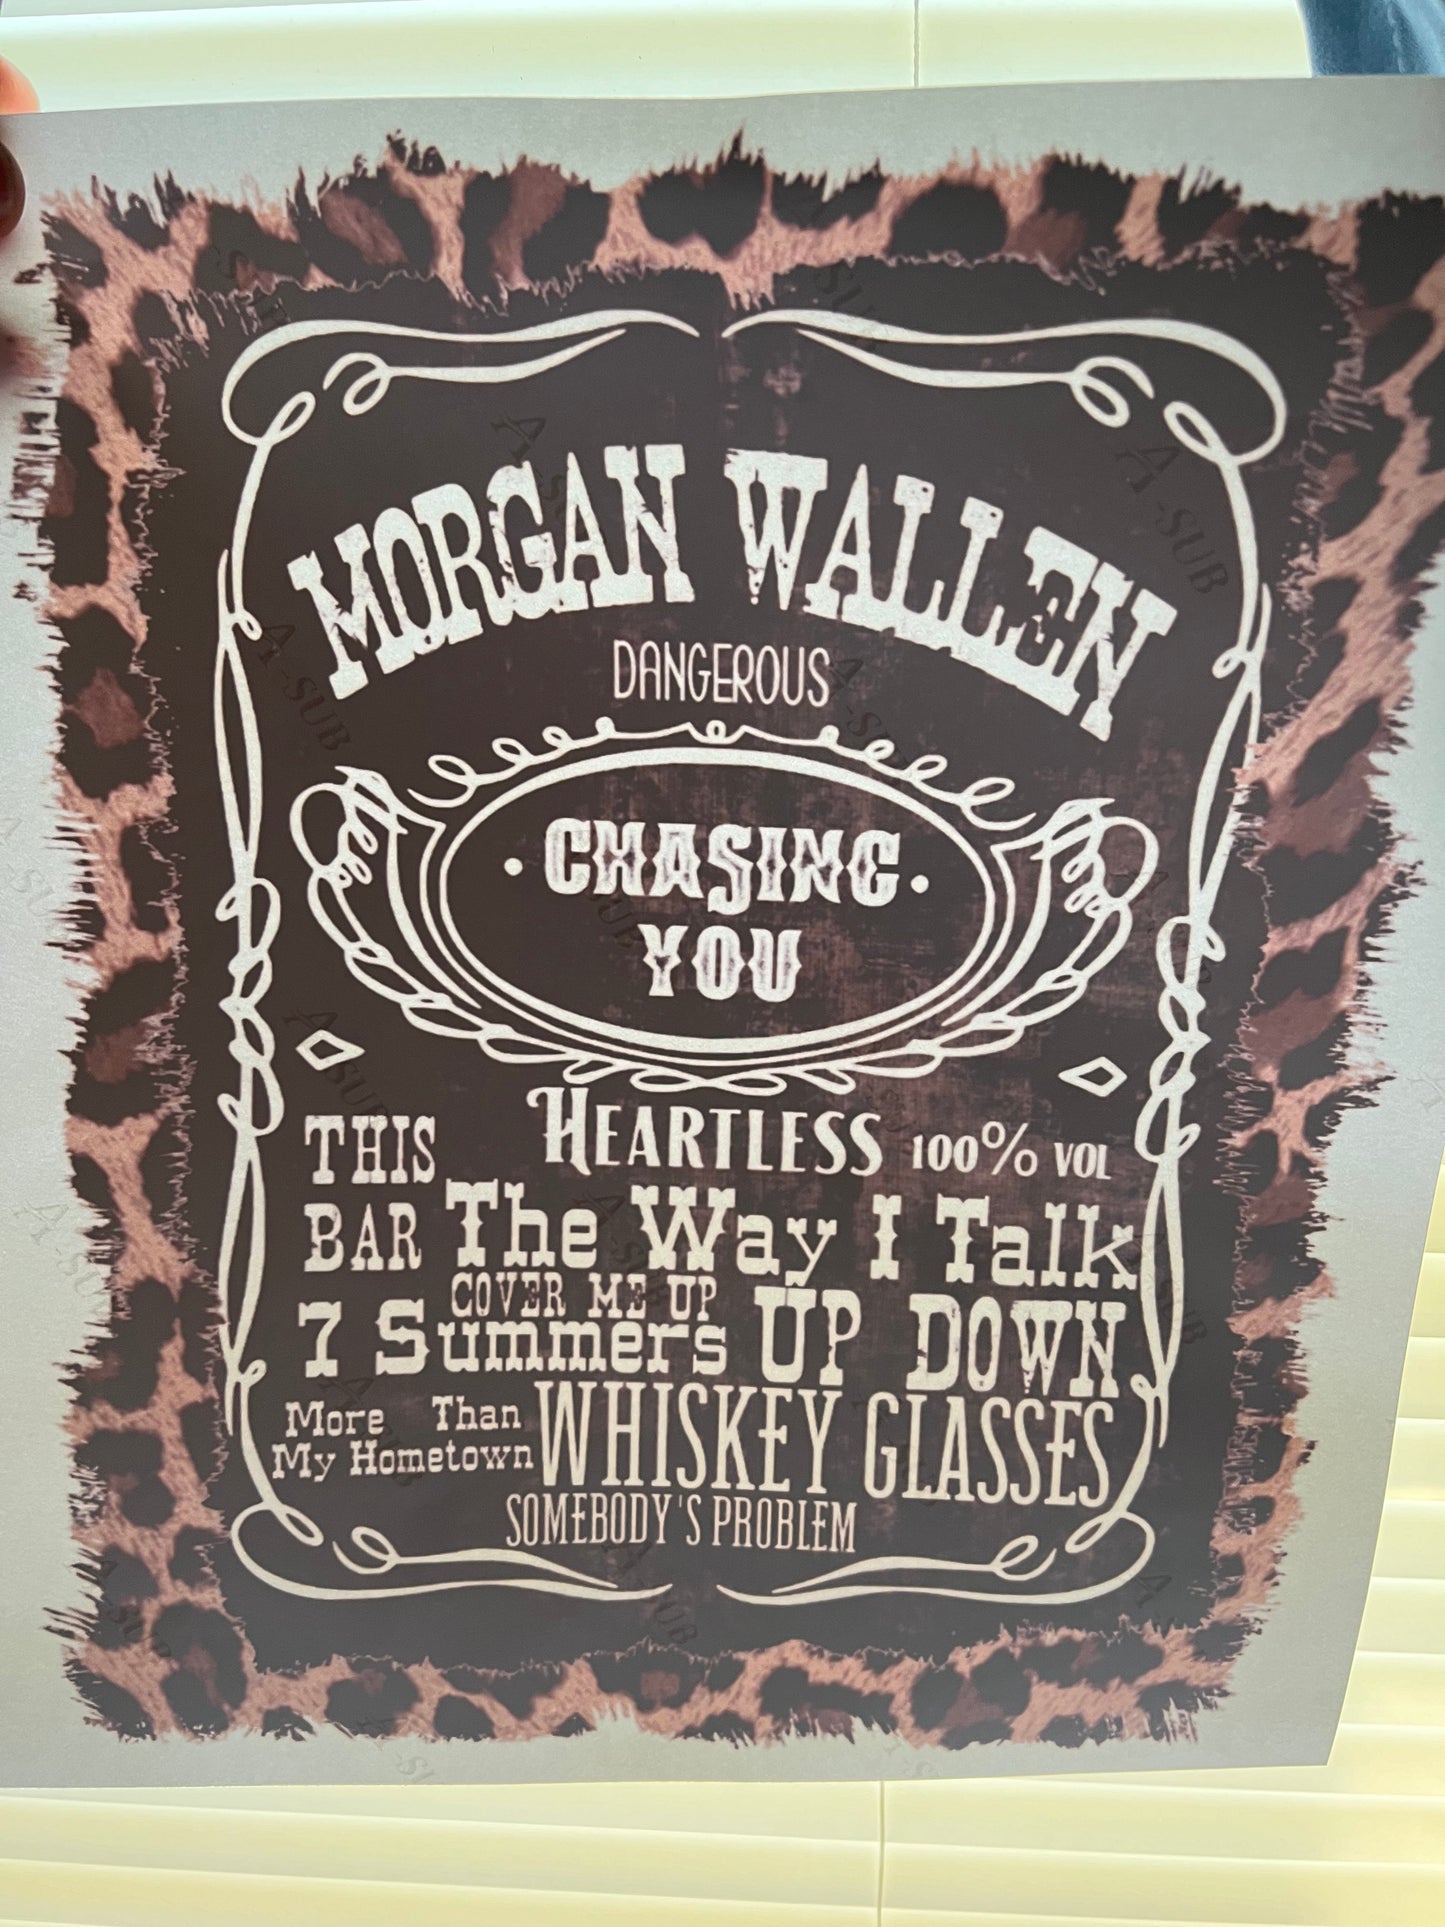 MORGAN WALLEN
DANGEROUS
• CHASING •
YOU
HEARTLESS 100% VOL
THIS
BAR
The Way I Talk
COVER ME UP
7 Summers
UP DOWN
More Than
My Hometown
WHISKEY GLASSES
SOMEBODY'S PROBLEM
A-SUB
A-SUB
A-SUB
A-SUB
A-SUB